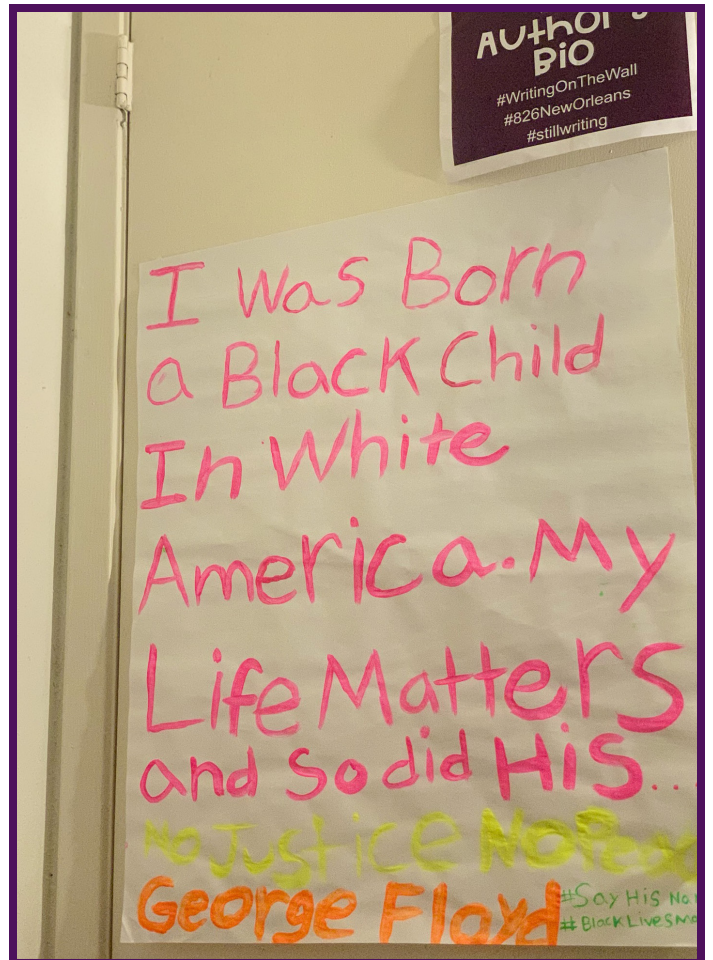 Author's
Bio
#WritingOnTheWall
#826NewOrleans
#stillwriting
I Was Born
a Black Child
In White
America. My
Life Matters
and So did His...
No Justice No Peac
George Floyd
#Say His Na
#BlackLivesMa